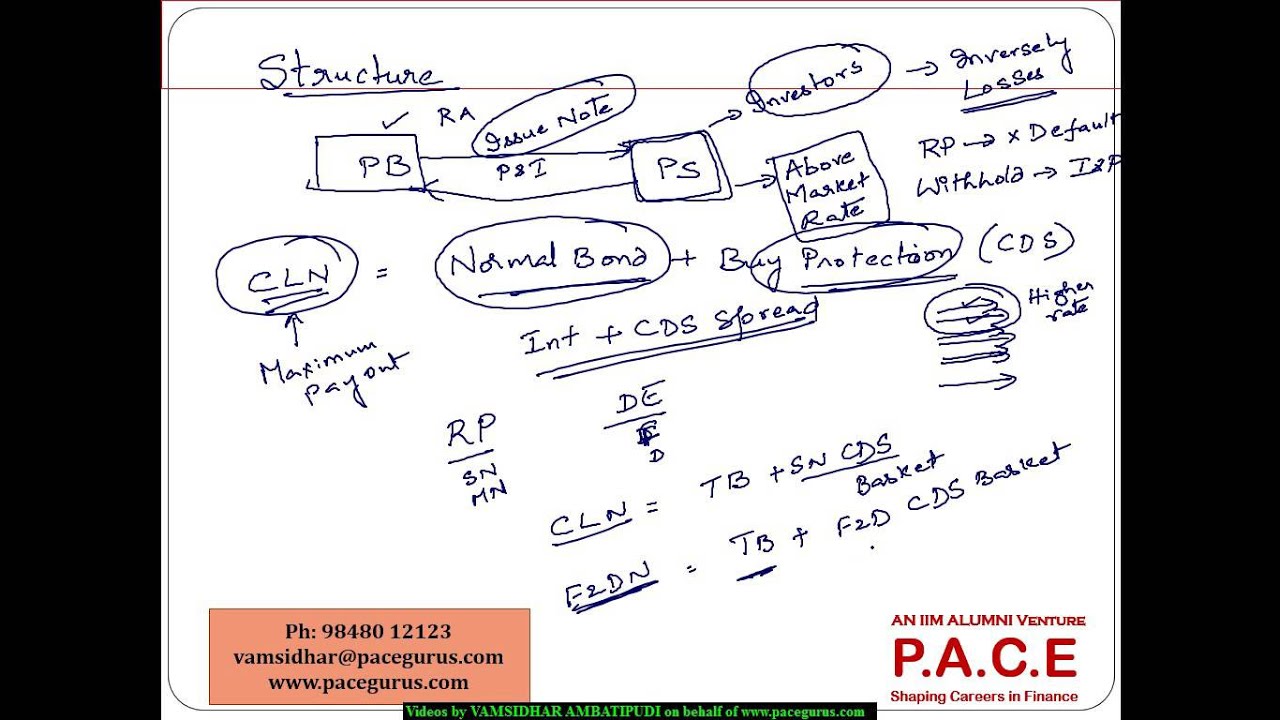 Structure
RA
Issue Note
Investors
Inversely
Losses
PB
P&I
PS
Above
Market
Rate
RP → x Default
Withhold → I&P
CLN = Normal Bond + Buy Protection (CDS)
Int + CDS Spread
Higher
rate
Maximum
pay out
RP
SN
MN
DE
D
CLN = TB + SN CDS
Basket
F2DN = TB + F2D CDS Basket
Ph: 98480 12123
vamsidhar@pacegurus.com
www.pacegurus.com
AN IIM ALUMNI VENTURE
P.A.C.E
Shaping Careers in Finance
Videos by VAMSIDHAR AMBATIPUDI on behalf of www.pacegurus.com